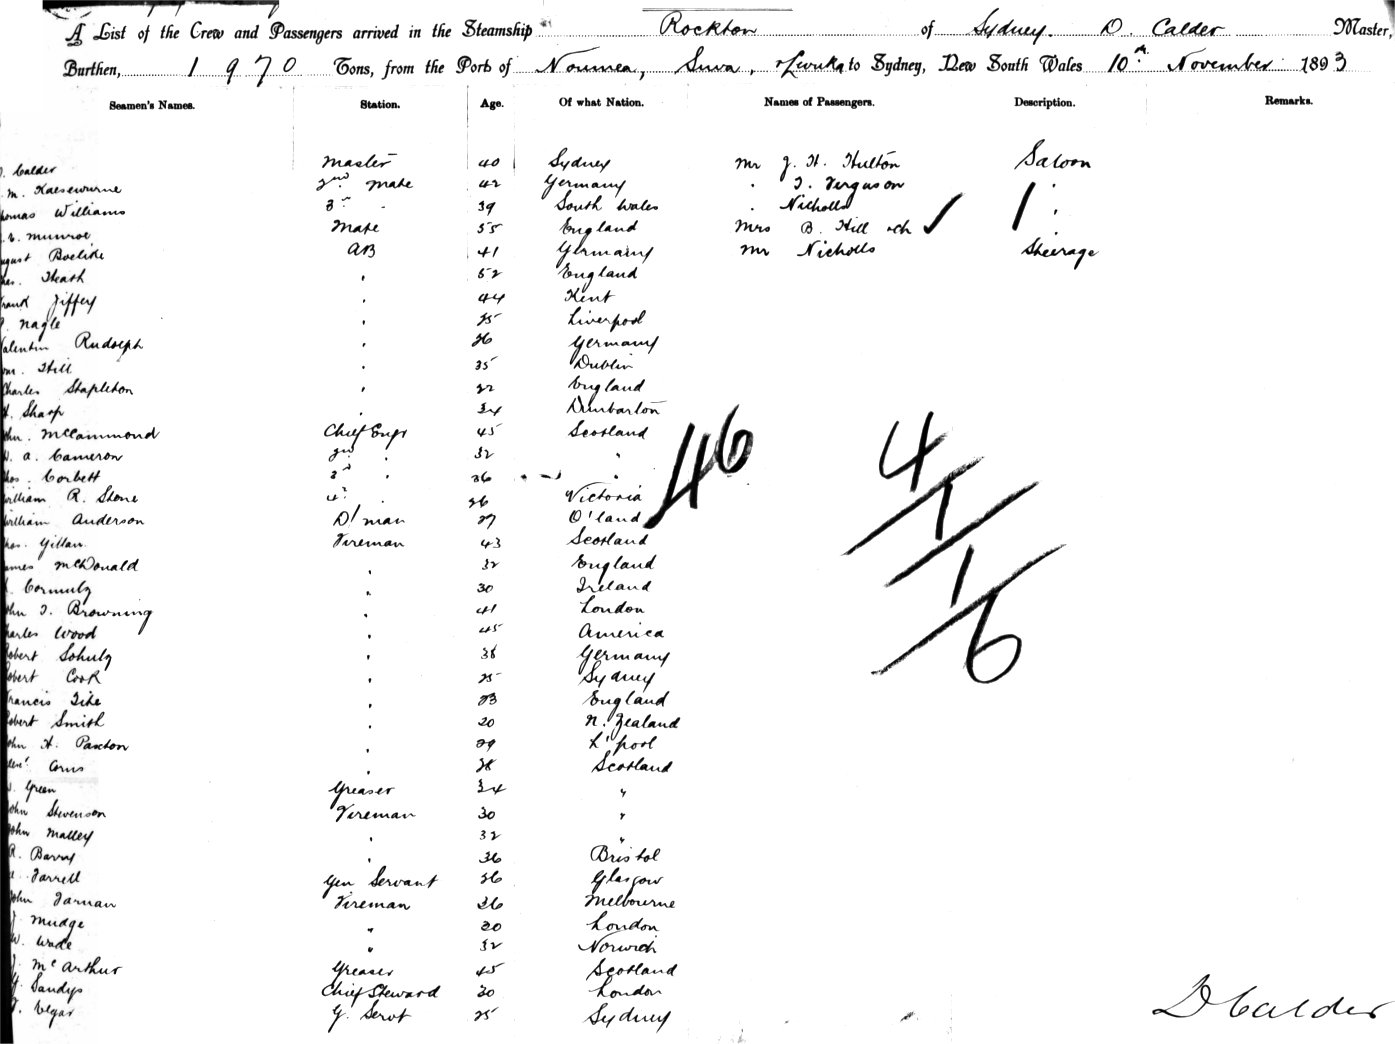 A List of the Crew and Passengers arrived in the Steamship Rockton of Sydney. D. Calder Master,
Burthen, 1970 Tons, from the Port of Noumea, Suva, & Levuka to Sydney, New South Wales 10th November 1893
Seamen's Names. Station. Age. Of what Nation. Names of Passengers. Description. Remarks.
Calder Master 40 Sydney Mr J. H. Hulton Saloon
M. 2nd Mate 42 Germany " T. Ferguson "
homas Williams 3rd " 39 South Wales " Nicholls "
Munroe Mate 55 England Mrs B. Hill & ch "
ugust Boelike AB 41 Germany Mr Nicholls Steerage
Heath " 52 England
rank Jiffery " 44 Kent
Nagle " 25 Liverpool
alentin Rudolph " 26 Germany
Hill " 35 Dublin
Charles Stapleton " 22 England
H. Sharp " 34 Dumbarton
ohn. McCammond Chief Engr 45 Scotland
A. Cameron 2nd " 32 "
hos. Corbett 3rd " 36 "
William R. Stone 4th " 26 Victoria
William Anderson D'man 27 O'land
hos. Gillan Fireman 43 Scotland
ames McDonald " 32 England
" 30 Ireland
ohn T. Browning " 41 London
harles Wood " 45 America
obert Schultz " 38 Germany
obert Cook " 25 Sydney
rancis Tite " 23 England
obert Smith " 20 N. Zealand
ohn H. Paxton " 29 L'pool
Corns " 28 Scotland
Green Greaser 34 "
ohn Stevenson Fireman 30 "
ohn Malley " 32 "
R. Barry " 36 Bristol
Farrell Gen Servant 26 Glasgow
John Farnan Fireman 26 Melbourne
J. Mudge " 20 London
W. Wade " 32 Norwich
J. McArthur Greaser 45 Scotland
Sandys Chief Steward 30 London
Vegar G. Servt 25 Sydney
46
4/1/1/6
D Calder